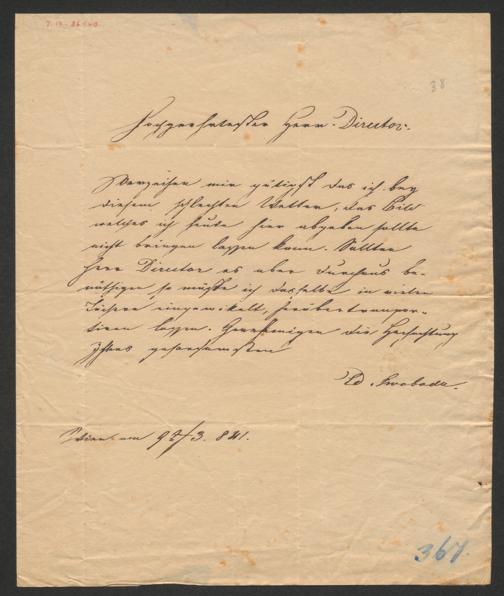 38
Hochgeehrtester Herr Director.
Verzeihen mir gütigst das ich bey
diesem schlechten Wetter, das Bild
welches ich heute hier abgeben sollte
nicht bringen lassen kann. Sollten
Herr Director es aber durchaus be-
nöthigen so müßte ich dasselbe in vielen
Tüchern eingewickelt, herübertranspor-
tieren lassen. Genehmigen die Hochachtung
Ihres gehorsamsten
Ed. Swoboda.
Wien am /3. 841.
367.